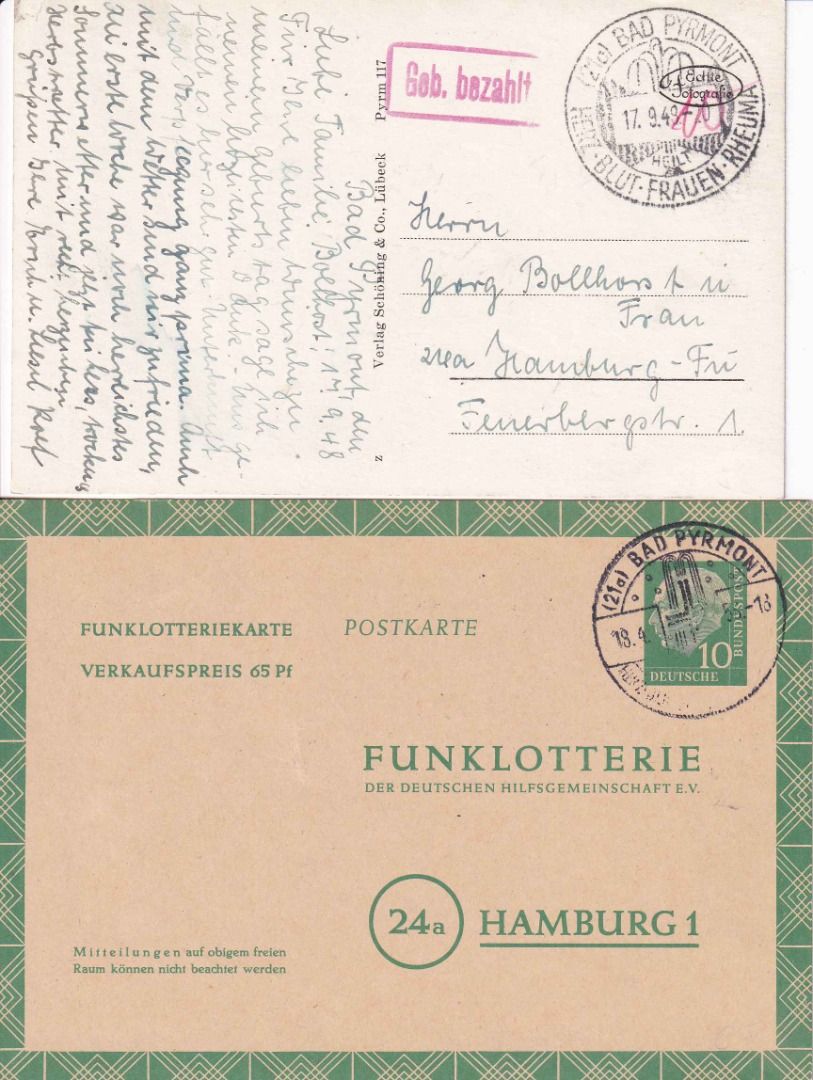 Bad Pyrmont, den
17.9.48
Liebe Familie Bollhorst,
Für Ihre lieben Wünsche zu
meinem Geburtstag sage ich
meinen herzlichsten Dank. - Uns ge-
fällt es hier sehr gut. Unterkunft
und Verpflegung ganz prima. Auch
mit dem Wetter sind wir zufrieden,
die erste Woche war noch herrlichstes
Sommerwetter und jetzt
Herbstwetter. Mit recht herzlichen
Grüßen Ihre u. Liesel
Pyrm 117
Verlag Schöning & Co., Lübeck
z
Geb. bezahlt
(21a) BAD PYRMONT
Echte
Fotografie
17.9.48
HEILT
HERZ · BLUT · FRAUEN · RHEUMA
Herrn
Georg Bollhorst u
Frau
24a Hamburg-Fu
Feuerbergstr. 1.
FUNKLOTTERIEKARTE
POSTKARTE
VERKAUFSPREIS 65 Pf
(21a) BAD PYRMONT
18.4.
-18
10
DEUTSCHE
BUNDESPOST
FUNKLOTTERIE
DER DEUTSCHEN HILFSGEMEINSCHAFT E.V.
24a HAMBURG 1
Mitteilungen auf obigem freien
Raum können nicht beachtet werden